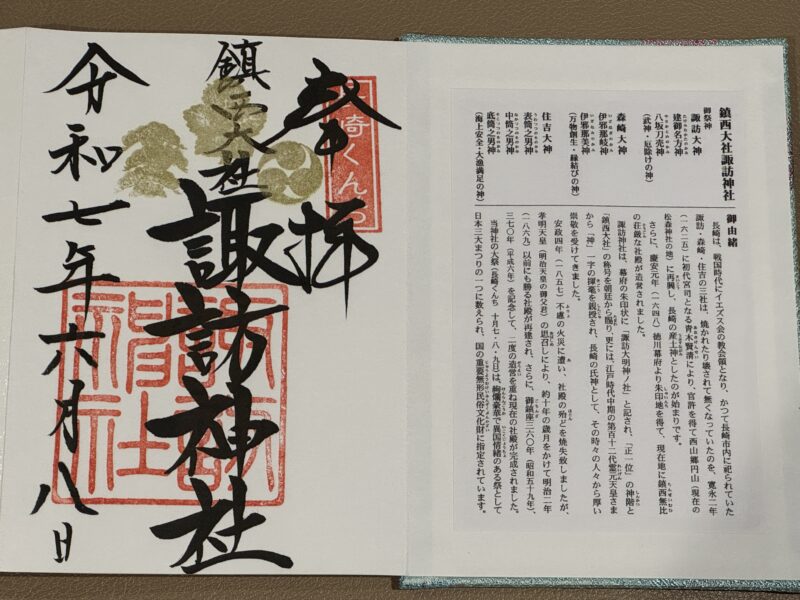 鎮西大社諏訪神社
御祭神
諏訪大神
建御名方神
八坂刀売神
(武神・厄除けの神)
森崎大神
伊邪那岐神
伊邪那美神
(万物創生・縁結びの神)
住吉大神
表筒之男神
中筒之男神
底筒之男神
(海上安全・大漁満足の神)
御由緒
長崎は、戦国時代にイエズス会の教会領となり、かつて長崎市内に祀られていた
諏訪・森崎・住吉の三社は、焼かれたり壊されて無くなっていたのを、寛永二年
(一六二五)に初代宮司となる青木賢清により、官許を得て西山郷円山(現在の
松森神社の地)に再興し、長崎の産土神としたのが始まりです。
さらに、慶安元年(一六四八)徳川幕府より朱印地を得て、現在地に鎮西無比
の荘厳な社殿が造営されました。
諏訪神社は、幕府の朱印状に「諏訪大明神ノ社」と記され、「正一位」の神階と
「鎮西大社」の称号を朝廷から賜り、更には、江戸時代中期の第百十二代霊元天皇さま
から「神」一字の揮毫を親授され、長崎の氏神として、その時々の人々から厚い
崇敬を受けてきました。
安政四年(一八五七)不慮の火災に遭い、社殿の殆どを焼失致しましたが、
孝明天皇(明治天皇の御父君)の思召しにより、約十年の歳月をかけて明治二年
(一八六九)以前にも勝る社殿が再建され、さらに、御鎮座三六〇年(昭和五十九年)、
三七〇年(平成六年)を記念して、二度の造営を重ね現在の社殿が完成されました。
当神社の大祭(長崎くんち 十月七・八・九日)は、絢爛豪華で異国情緒のある祭として
日本三大まつりの一つに数えられ、国の重要無形民俗文化財に指定されています。
奉拝
崎くんち
鎮西大社
諏訪神社
諏訪神社
令和七年六月八日